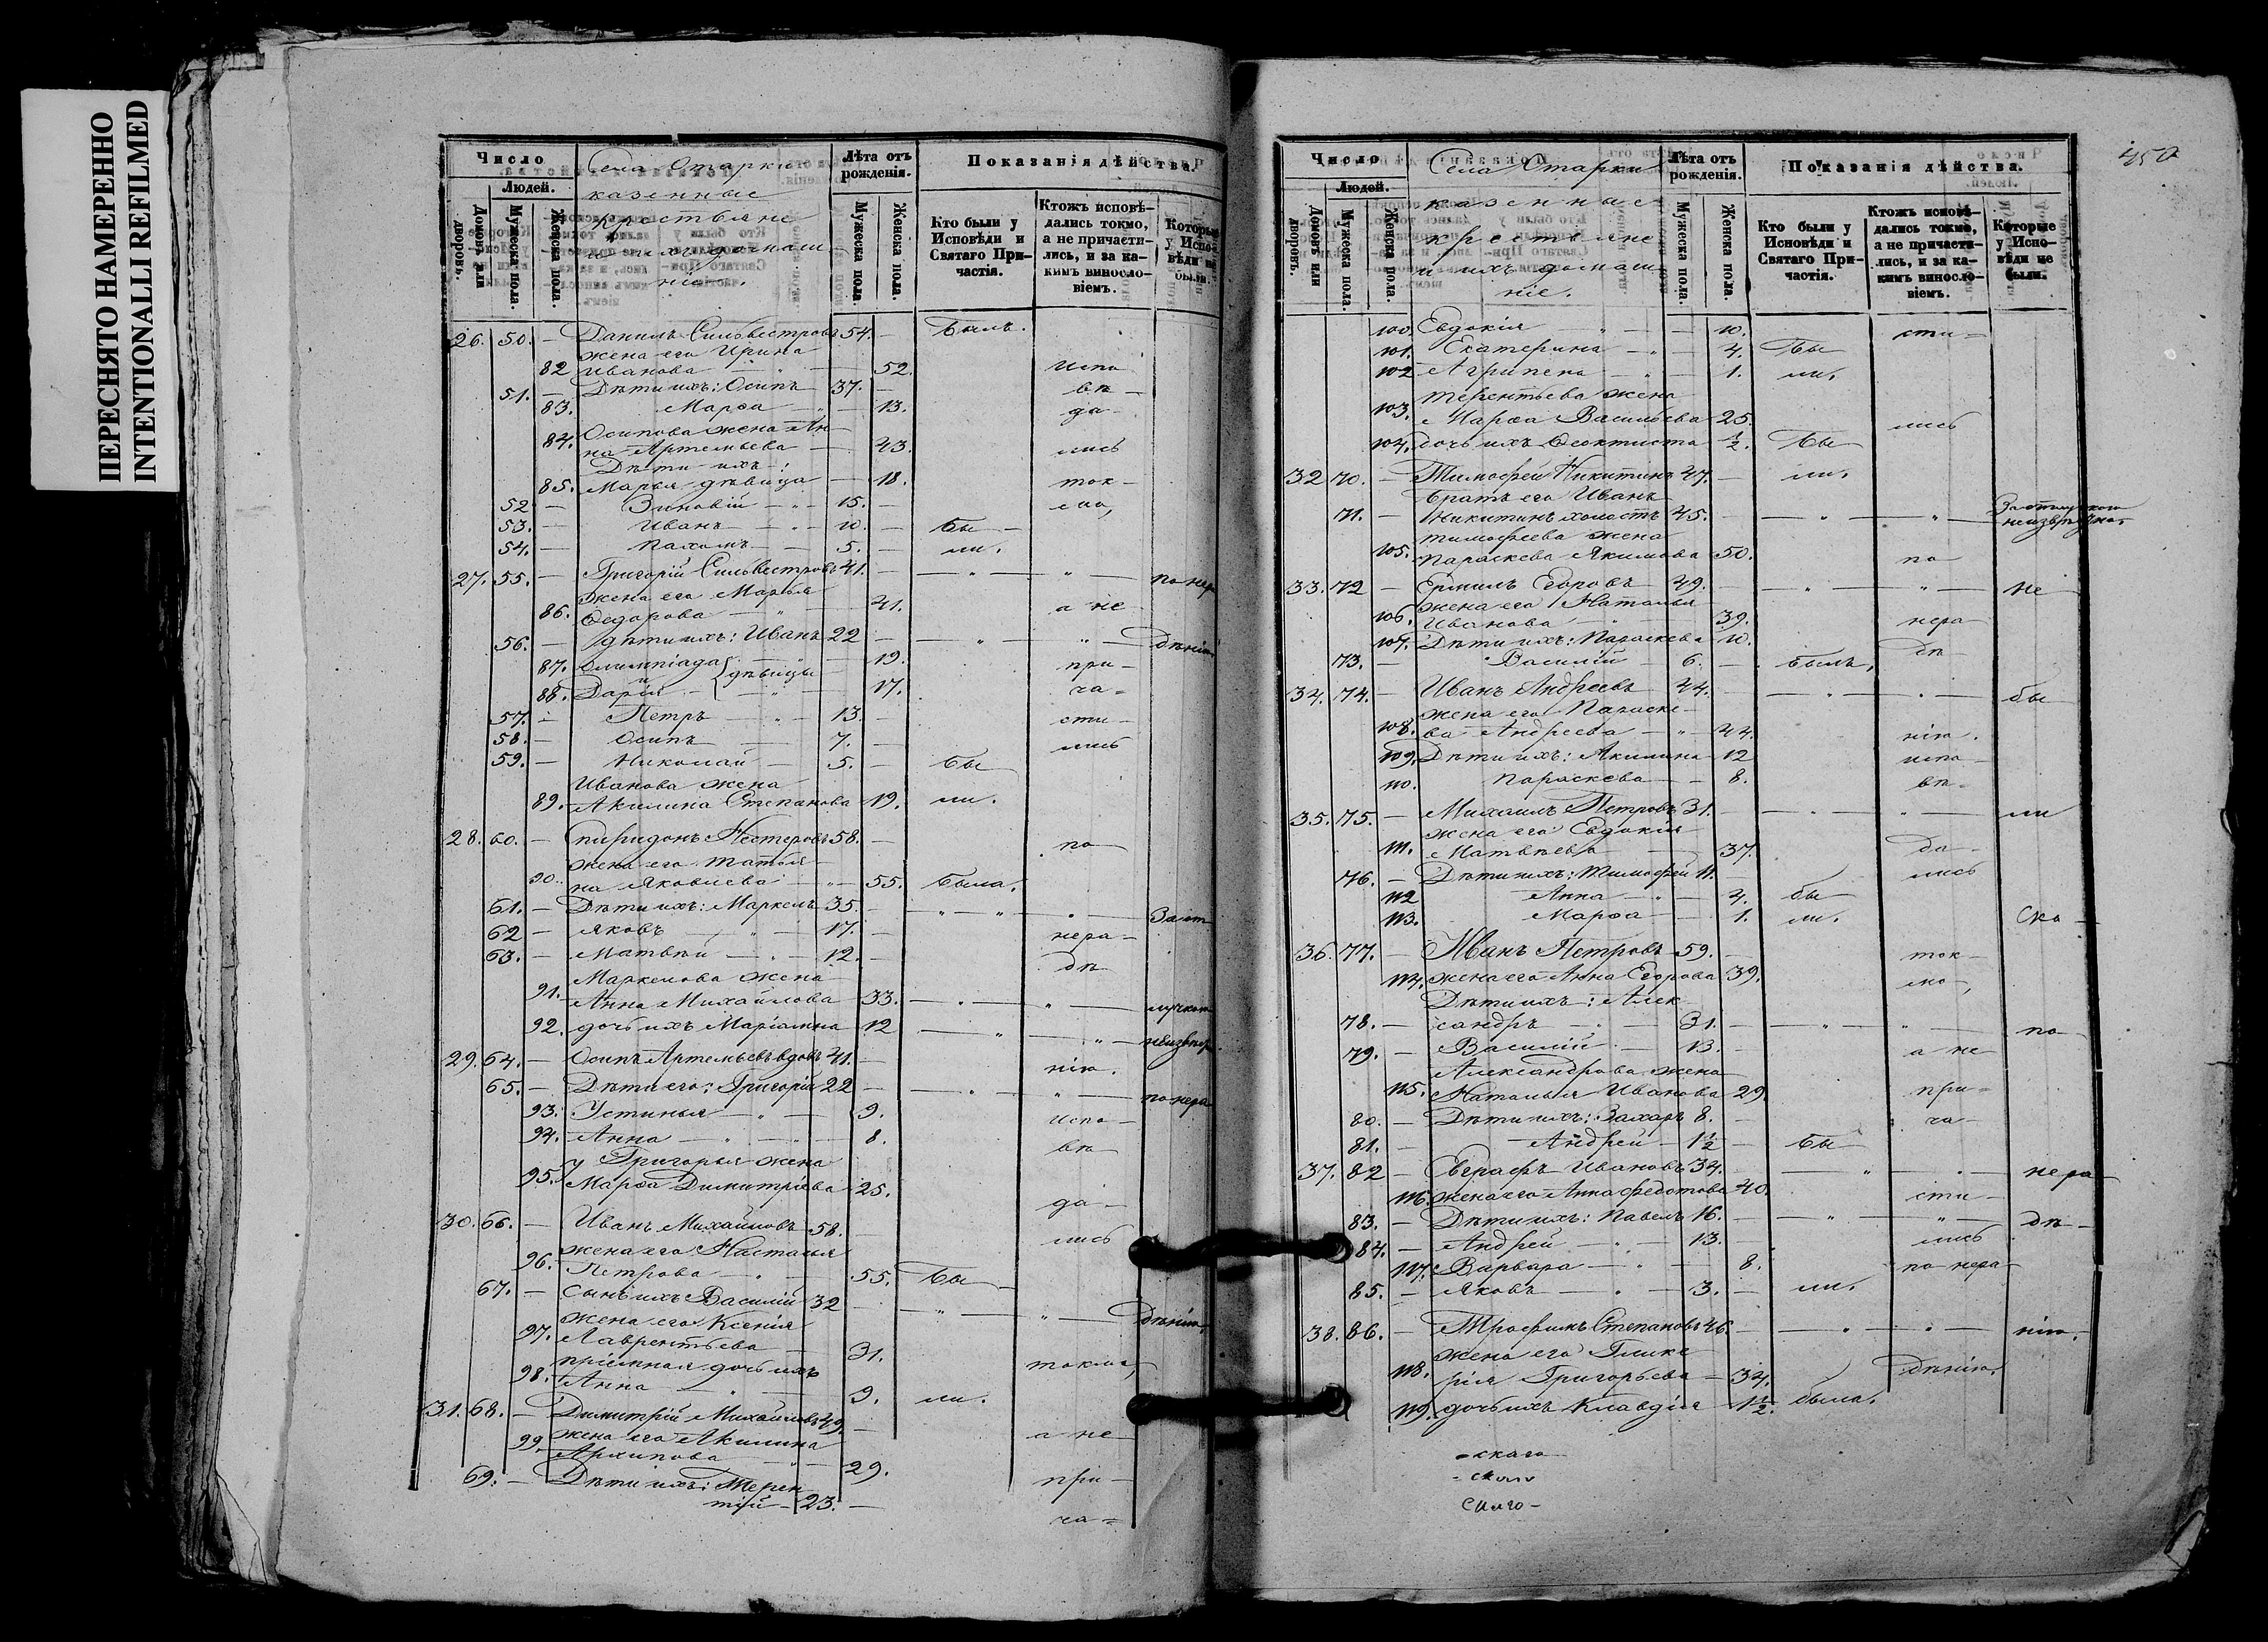 ПЕРЕСНЯТО НАМЕРЕННО
INTENTIONALLI REFILMED
Число
Людей.
Домовъ или дворовъ.
Мужеска пола.
Женска пола.
Села Старки
казенные
крестьяне
и ихъ домаш-
ніе.
Лѣта отъ рожденія.
Мужеска пола
Женска пола.
Показанія дѣйства.
Кто были у Исповѣди и Святаго Причастія.
Ктожъ исповѣдались токмо, а не причастились, и за какимъ винословіемъ.
Которые у Исповѣди не были.
26. 50. — Данилъ Сильвестровъ 54. — Былъ.
жена его Ирина
82 Иванова — 52. испо
51. — Дѣти ихъ: Осипъ 37. — вѣ-
83. Марѳа — 13. да-
Осипова жена Ан-
84. на Артемьева — 43. лись
Дѣти ихъ:
85. Марья дѣвица — 18. ток-
52 — Зиновій — 15. — мо,
53. — Иванъ — 10. — Бы-
54. — Пахомъ — 5. — ли.
27. 55. — Григорій Сильвестровъ 41. — по нера
жена его Марья
86. Ѳедорова — 41. а не
56. — дѣти ихъ: Иванъ 22 — дѣнію.
87. Олимпіада — 19. при-
и } дѣвицы
88. Дарія — 17. ча-
57. — Петръ — 13. — сти-
58. — Осипъ — 7. — лись
59. — Николай — 5. — Бы
Иванова жена
89. Акилина Степанова 19. ли.
28. 60. — Спиридонъ Нестеровъ 58. — по
жена его Татья-
90. на Яковлева — 55. была.
61. — Дѣти ихъ: Маркелъ 35. — За от
62 — Яковъ — 17. — нера-
63. — Матвѣй — 12. — дѣ
Маркелова жена
91. Анна Михайлова 33. — лучкою
92. дочь ихъ Маріамна 12 — неизвѣр.
29. 64. — Осипъ Артемьевъ вдовъ 41. — нію.
65. — Дѣти его: Григорій 22 — по нера
93. Устинья — 9. испо-
94. Анна — 8. вѣ
у Григорья жена
95. Марѳа Димитріева 25. да-
30. 66. — Иванъ Михайловъ 58. — лись
жена его Наталья
96. Петрова — 55. Бы
67. — Сынъ ихъ Василій 32 — дѣнію.
жена его Ксенія
97. Лаврентьева — 31. токмо,
пріемная дочь ихъ
98. Анна — 9. ли.
31. 68. — Димитрій Михайловъ 49. — а не
жена его Акилина
99. Архипова — 29. при-
69. — Дѣти ихъ: Терен
тій — 23. — ча-
450
Число
Людей.
Домовъ или дворовъ.
Мужеска пола.
Женска пола.
Села Старки
казенные
крестьяне
и ихъ домаш-
ніе.
Лѣта отъ рожденія.
Мужеска пола.
Женска пола.
Показанія дѣйства.
Кто были у Исповѣди и Святаго Причастія.
Ктожъ исповѣдались токмо, а не причастились, и за какимъ винословіемъ.
Которые у Исповѣди не были.
100. Евдокія — 10. сти-
101. Екатерина — 4. Бы
102 Агрипена — 1. ли.
Терентьева жена
103. Марѳа Васильева 25. лись
104. дочь ихъ Ѳеоктиста 1/2. Бы
32 70. — Тимофей Никитинъ 47. — ли.
братъ его Иванъ
71. — Никитинъ холостъ 45. — За отлучкою
Тимофеева жена
105. Параскева Якимова 50. по
33. 72 — Ермилъ Егоровъ 49. — не
жена его Наталья
106. Иванова — 39. нера-
107. Дѣти ихъ: Параскева 10. дѣ
73. — Василій — 6. — былъ,
34. 74. — Иванъ Андреевъ 44. — бы
жена его Параске-
108. ва Андреева — 44. нію.
109. Дѣти ихъ: Акилина 12 испо-
110. Параскева — 8. вѣ-
35. 75. — Михаилъ Петровъ 31. — ли
жена его Евдокія
111. Матвѣева 37. да-
76. — Дѣти ихъ: Тимофей 11. — лись
112 Анна — 4. бы
113. Марѳа — 1. ли.
36. 77. — Иванъ Петровъ 59. — ток-
114. жена его Анна Егорова 39. мо,
Дѣти ихъ: Алек
78. — сандръ — 31. — по
79. — Василій — 13. — а не
Александрова жена
115. Наталья Иванова 29. при-
80. — Дѣти ихъ: Захаръ 8. — ча-
81. — Андрей — 1 1/2 — Бы
37. 82 — Евграфъ Ивановъ 34. — нера
116. жена его Анна Федотова 40. сти-
83. — Дѣти ихъ: Павелъ 16. — дѣ-
84. — Андрей — 13. — лись
117. Варвара — 8. по нера
85. — Яковъ — 3. — ли.
38. 86. — Трофимъ Степановъ 46. — нію.
жена его Глике
118. рія Григорьева — 34. дѣнію.
119. дочь ихъ Клавдія 1 1/2. была.